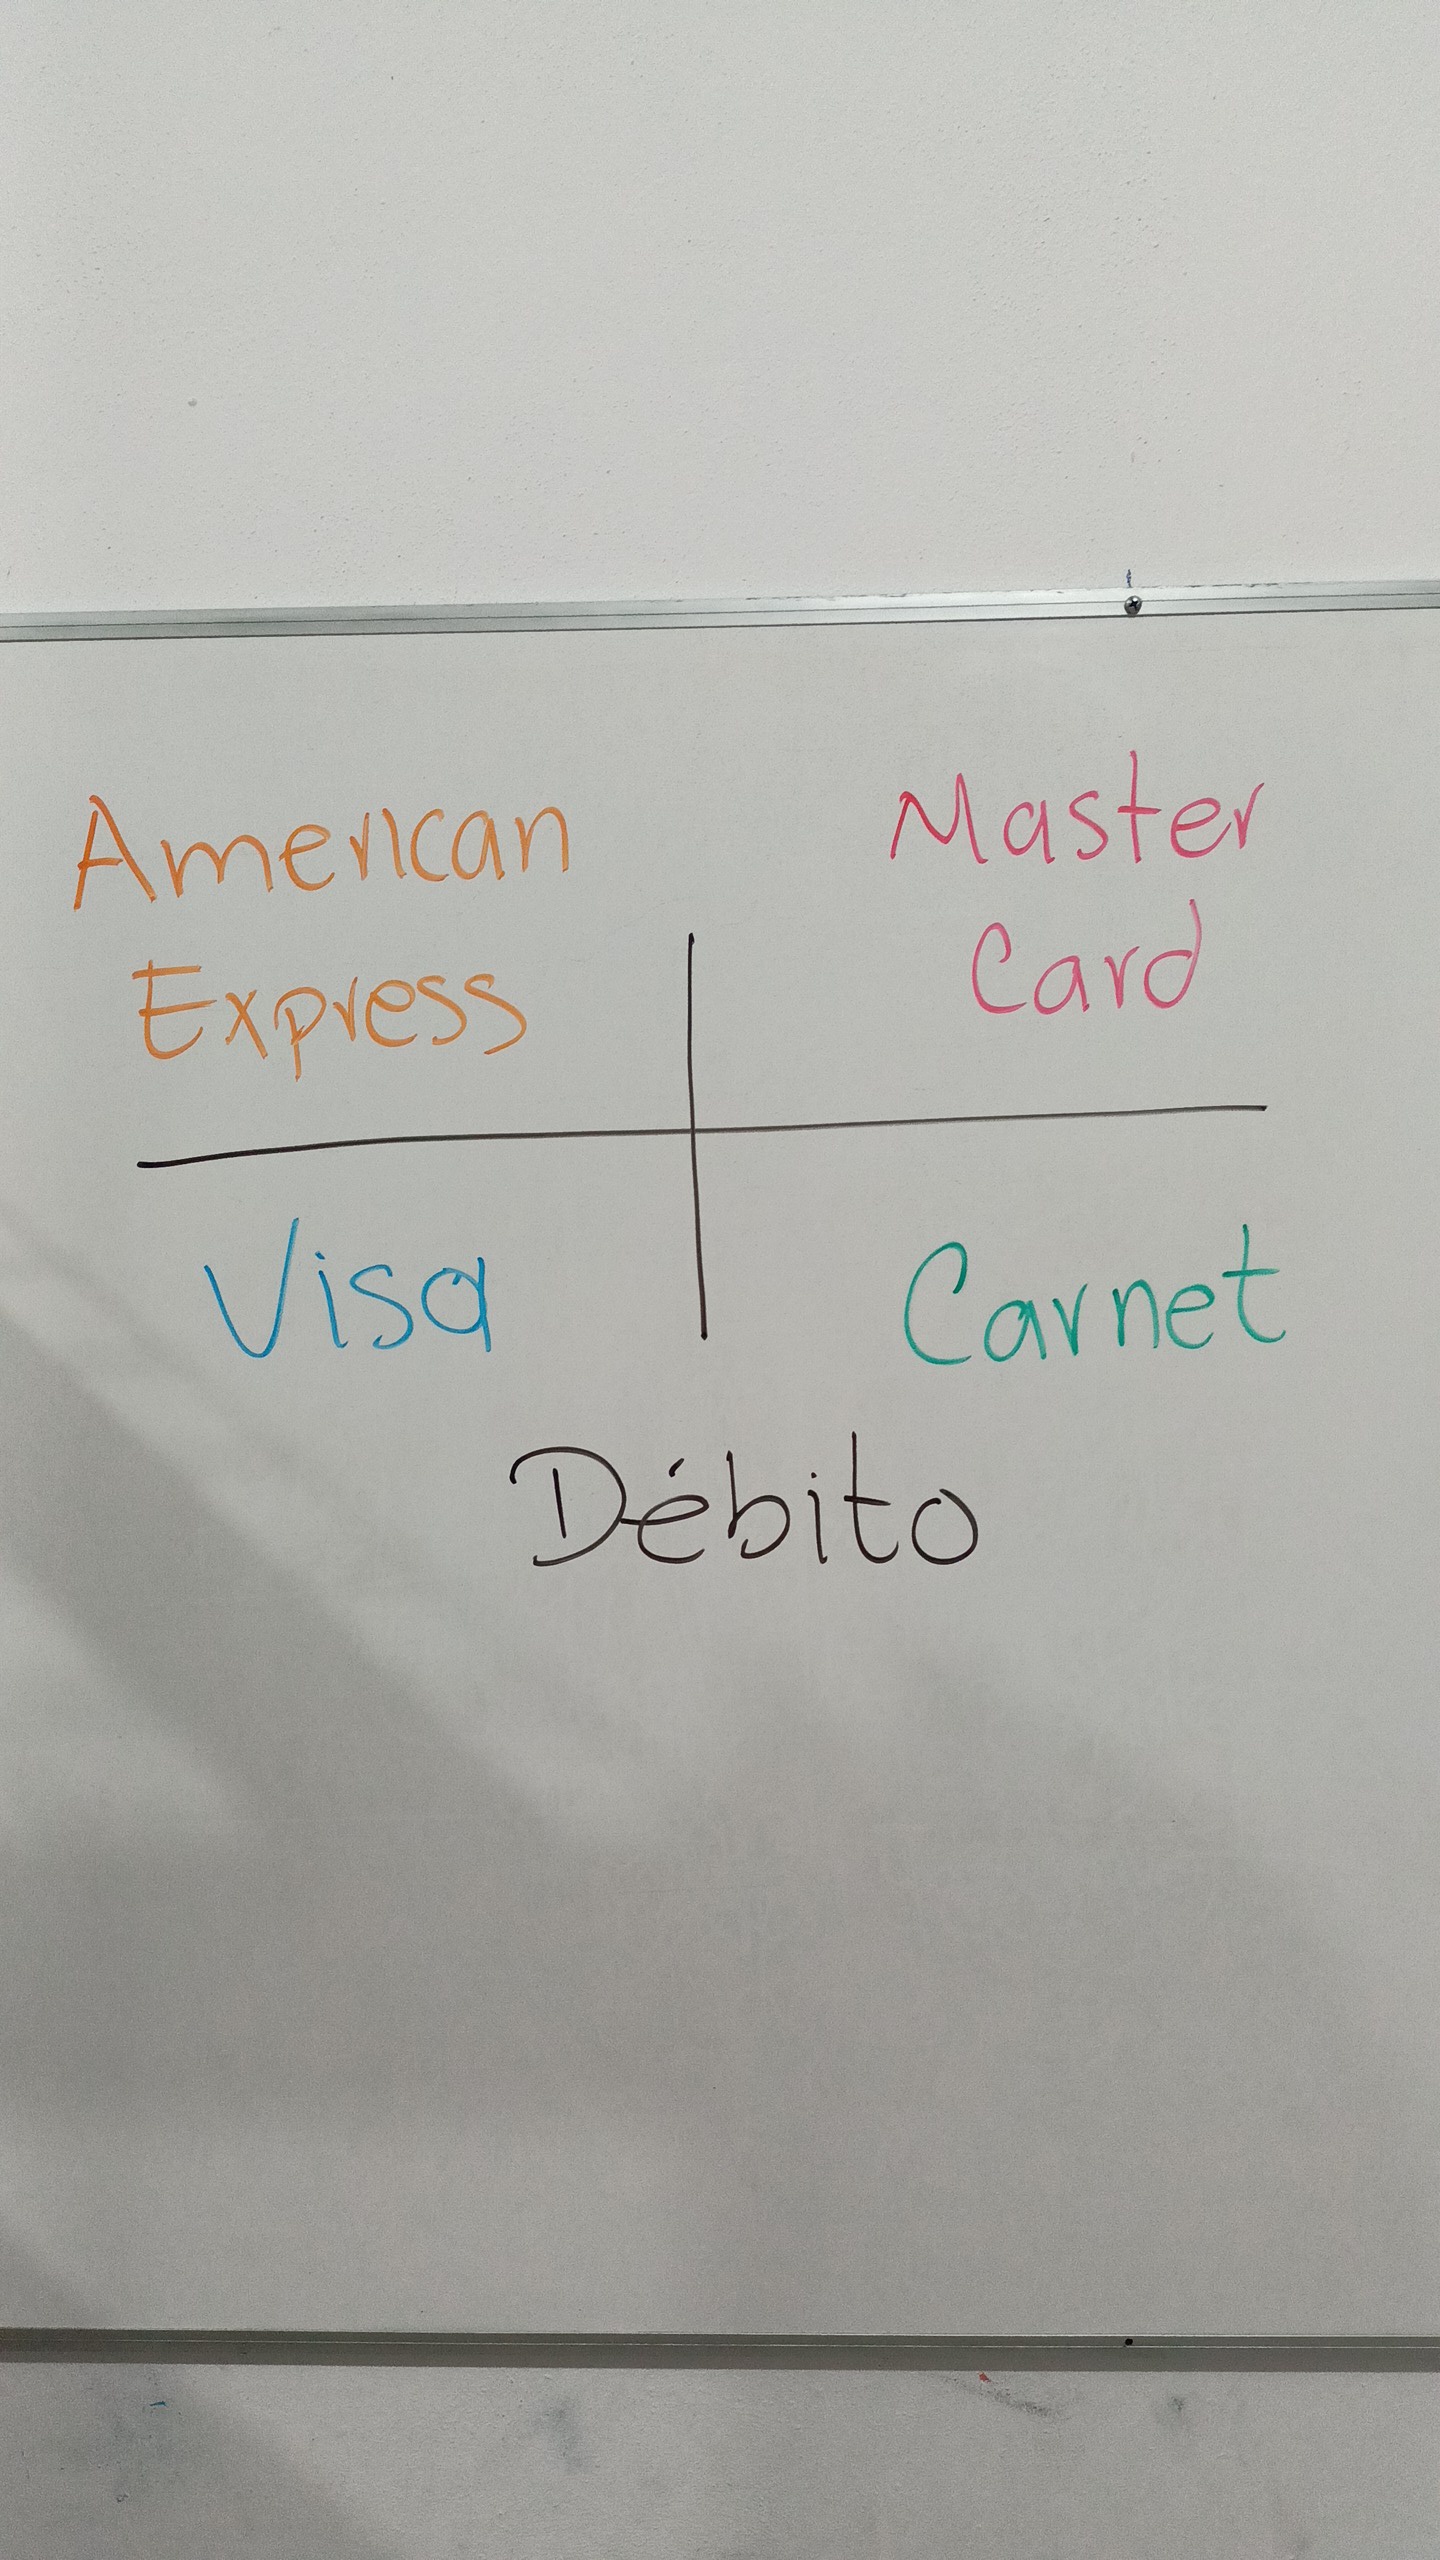 American
Express
Master
Card
Visa
Carnet
Débito